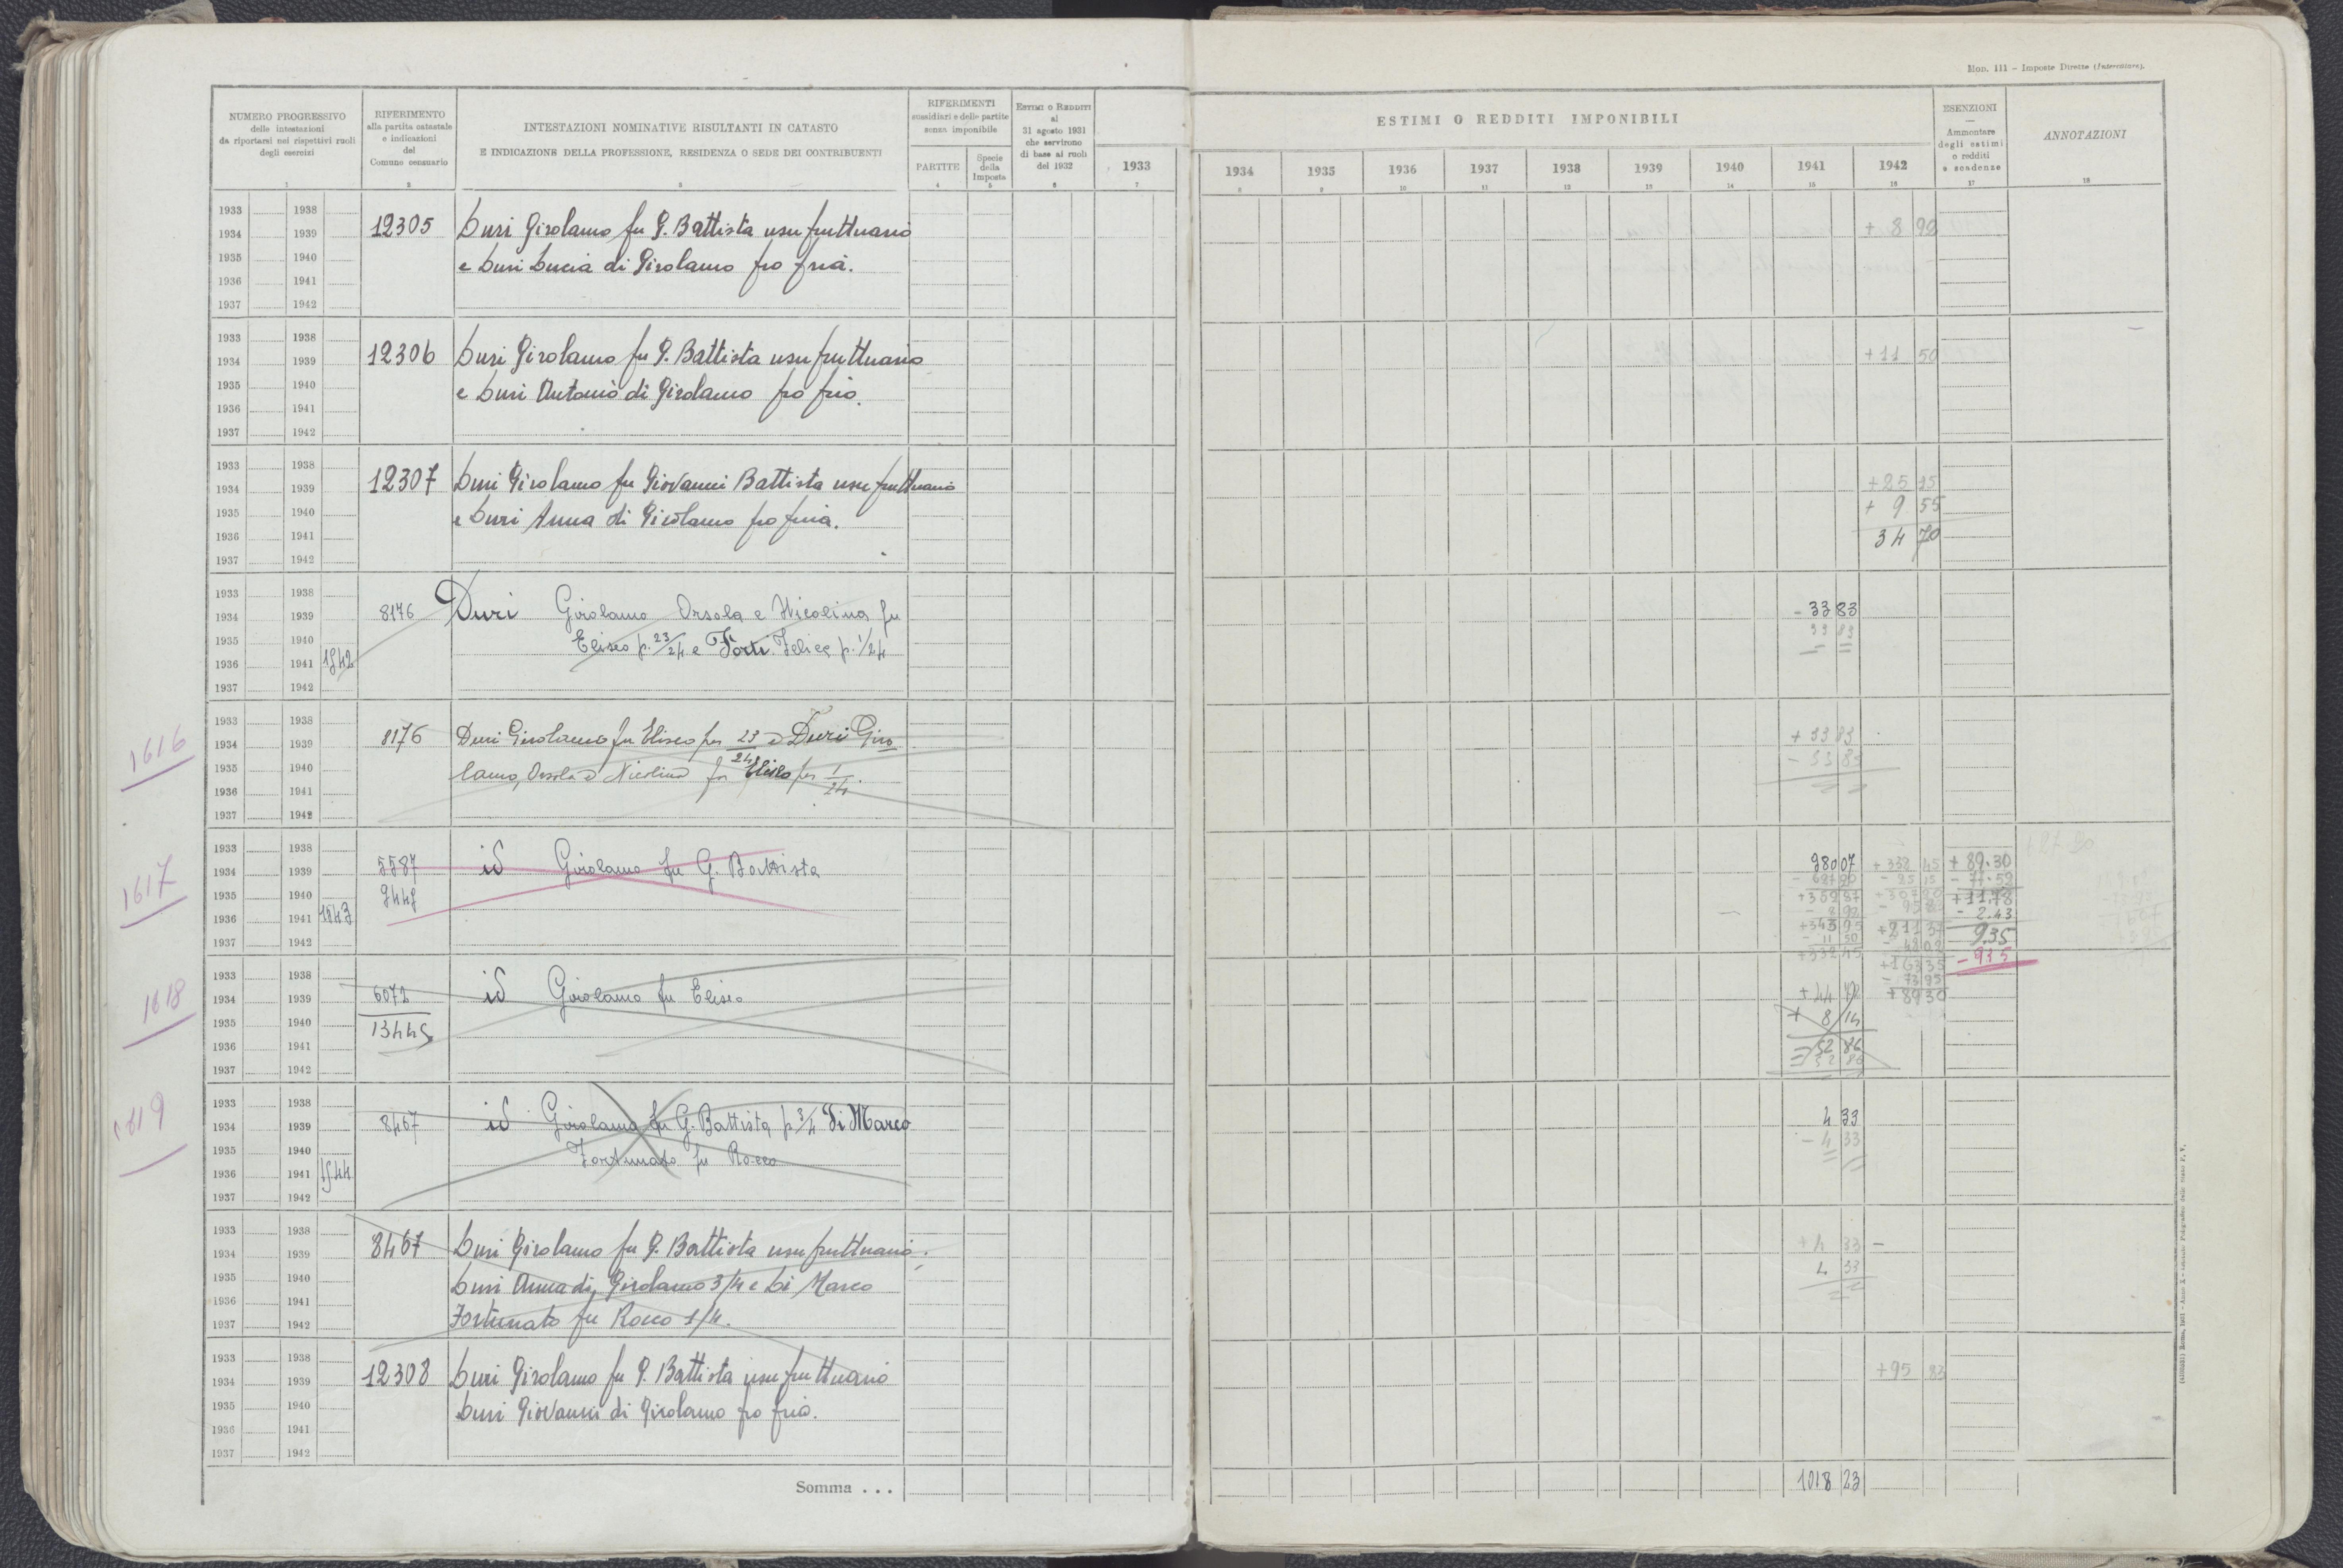 Mod. 111 – Imposte Dirette (Intercalare).
NUMERO PROGRESSIVO
delle intestazioni
da riportarsi nei rispettivi ruoli
degli esercizi
1
RIFERIMENTO
alla partita catastale
e indicazioni
del
Comune censuario
2
INTESTAZIONI NOMINATIVE RISULTANTI IN CATASTO
E INDICAZIONE DELLA PROFESSIONE, RESIDENZA O SEDE DEI CONTRIBUENTI
3
RIFERIMENTI
sussidiari e delle partite
senza imponibile
PARTITE
4
Specie
della
Imposta
5
ESTIMI O REDDITI
al
31 agosto 1931
che servirono
di base ai ruoli
del 1932
6
1933
7
ESTIMI O REDDITI IMPONIBILI
1934 1935 1936 1937 1938 1939 1940 1941 1942
8 9 10 11 12 13 14 15 16
ESENZIONI
—
Ammontare
degli estimi
o redditi
a scadenze
17
ANNOTAZIONI
18
1933 1938
1934 1939 12305 Duri Girolamo fu G. Battista usufruttuario + 8 92
1935 1940 e Duri Lucia di Girolamo pro pria.
1936 1941
1937 1942
1933 1938
1934 1939 12306 Duri Girolamo fu G. Battista usufruttuario + 11 50
1935 1940 e Duri Antonio di Girolamo pro prio.
1936 1941
1937 1942
1933 1938
1934 1939 12307 Duri Girolamo fu Giovanni Battista usufruttuario + 25 15
1935 1940 e Duri Anna di Girolamo pro pria. + 9 55
1936 1941 34 70
1937 1942
1933 1938
1934 1939 8176 Duri Girolamo Orsola e Nicolina fu - 33 83
1935 1940 Eliseo p. 23/24 e Forti Felice p. 1/24 33 83
1936 1941 1942
1937 1942
1933 1938
1616 1934 1939 8176 Duri Girolamo fu Eliseo per 23/24 e Duri Giro + 33 83
1935 1940 lamo, Orsola e Nicolina fu Eliseo per 1/24. - 33 83
1936 1941
1937 1942
1933 1938
1617 1934 1939 5587 id Girolamo fu G. Battista 980 07 + 332 45 + 89.30
1935 1940 9449 - 25 15 - 77.52
1936 1941 1943 + 11.78
- 8 92 - 2.43
1937 1942 9.35
- 11 50 - 48 02
- 9 35
+ 163 35
- 73 95
+ 89 30
1933 1938
1618 1934 1939 6072 id Girolamo fu Eliseo + 44 72
1935 1940 13445 + 8 14
1936 1941 = 52 86
1937 1942 52 86
1933 1938
1619 1934 1939 8467 id Girolamo fu G. Battista p. 3/4 Di Marco 4 33
1935 1940 Fortunato fu Rocco - 4 33
1936 1941 1944
1937 1942
1933 1938
1934 1939 8467 Duri Girolamo fu G. Battista usufruttuario + 4 33 -
1935 1940 Duri Anna di Girolamo 3/4 e Di Marco 4 33
1936 1941 Fortunato fu Rocco 1/4.
1937 1942
1933 1938
1934 1939 12308 Duri Girolamo fu G. Battista usufruttuario + 95 83
1935 1940 Duri Giovanni di Girolamo pro prio.
1936 1941
1937 1942
Somma . . . 1018 23